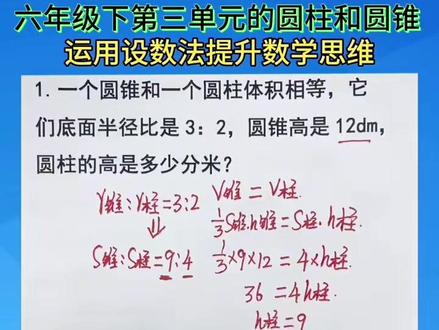 六年级下第三单元的圆柱和圆锥
运用设数法提升数学思维
1. 一个圆锥和一个圆柱体积相等，它
们底面半径比是 3：2，圆锥高是 12dm，
圆柱的高是多少分米？
r锥:r柱=3:2
⇓
S锥:S柱=9:4
V锥=V柱.
1/3S锥.h锥=S柱.h柱.
1/3×9×12=4×h柱.
36=4h柱.
h柱=9